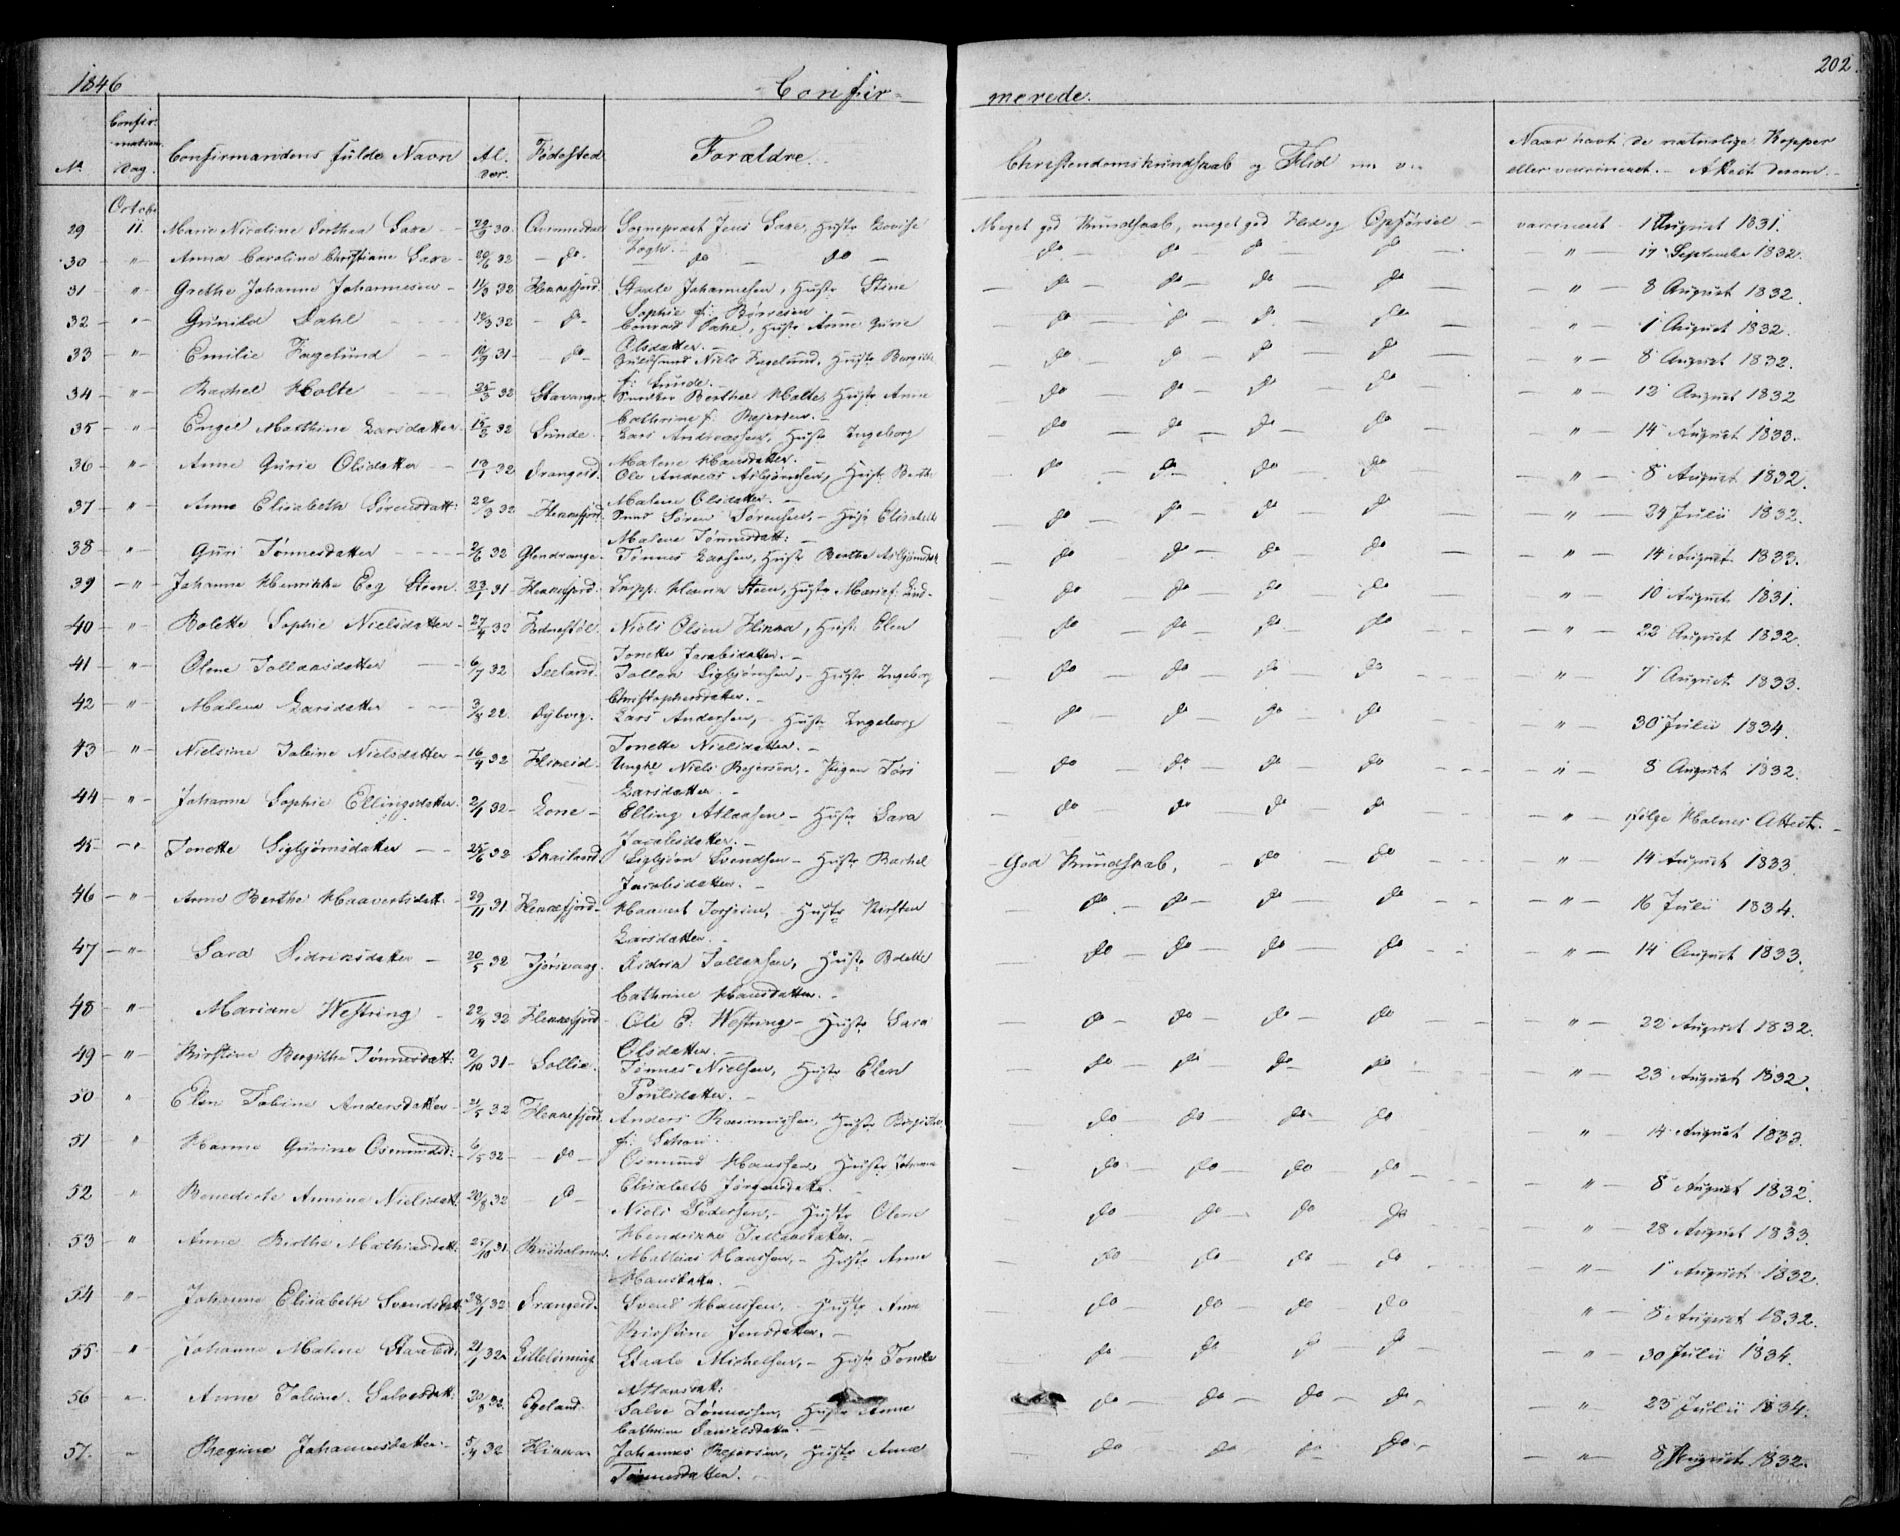 1846 Confirmerede. 202.
No Confirmations Dag Confirmandens fulde Navn Alder. Fødested Forældre. Christendomskundskab og Flid Naar havt de naturlige Kopper
eller vaccineret. Attest derom.
Octobr
29 11 Marie Nicoline Dorthea Saxe 30 Sognepræst Jens Saxe, Hustr Lovise Meget god Kundskab, meget god Flid og Opførsel vaccineret August 1831.
30 " Anna Caroline Christiane Saxe 20/6 32 do do do do do do do " 17 Septembr 1832.
31 " Grethe Johanne Johannesen 11/3 32 Flekkefjord Staale Johannesen, Hustr Stine do do do do " 8 August 1832.
Sophie f:
32 " Gunild Dahl 32 do Conrad Dahl, Hustr Anne Gurie do do do do " 1 August 1832.
Olsdatter.
33 " Emilie Fagelund 31 do Niels Fagelund, Hustr Bergithe do do do do " 8 August 1832.
f: Lunde.
34 " Rachel Holte 25/3 32 Stavanger Berthel Holte, Hustr Anne do do do do " 12 August 1832
Cathrine f. Reiersen.
35 " Engel Marthine Larsdatter 32 Sunde Lars Andreassen, Hustr Ingeborg do do do do " 14 August 1833.
Malene Hansdatter.
36 " Anne Gurie Olsdatter 13/1 32 Drangeid Ole Andreas Asbjørnsen, Hustr Berthe do do do do " 8 August 1832.
Malene Olsdatter.
37 " Anne Elisabeth Sørensdatt: 22/3 32 Flekkefjord Søren Sørensen, Hustr Elisabeth do do do do " 24 Julii 1832.
Malene Tønnesdatt:
38 " Guri Tønnesdatter 2/6 32 Glendrange Tønnes Larsen, Hustr Berthe Asbjørnsdatt do do do do " 14 August 1833.
39 " Johanne Henrikke Eeg Steen 31 Flekkefjord Henrik Steen, Hustr Marie f. do do do do " 10 August 1831.
40 " Bolette Sophie Nielsdatter 27/4 32 Niels Olsen Flikka, Hustr Elen do do do do " 22 August 1832.
Tonette Jacobsdatter.
41 " Olene Tollaksdatter 6/7 32 Seeland Tollak Sigbjørnsen, Hustr Ingeborg do do do do " 7 August 1833.
Christophersdatter.
42 " Malene Larsdatter 3/8 22 Lars Andersen, Hustr Ingeborg do do do do " 30 Julii 1834.
Tonette Nielsdatter.
43 " Nielsine Tobine Nielsdatter 16/4 32 Flikeid Ungkl Niels Reiersen, Pigen Tori do do do do " 8 August 1832.
Larsdatter.
44 " Johanne Sophie Ellingsdatter 2/1 32 Lone Elling Atlaksen Hustr Sara do do do do " ifølge Attest.
Jacobsdatter.
45 " Tonette Sigbjørnsdatter 25/6 32 Sigbjørn Svendsen Hustr Rachel God Kundskab, do do " 14 August 1833
Jacobsdatter.
46 " Anne Berthe Haavertsdatt 29/11 31 Flekkefjord Haavert Torjesen, Hustr Kirsten do do do do " 16 Julii 1834.
Larsdatter.
47 " Sara Didriksdatter 20/5 32 Tjørsvaag Didrik Tollaksen, Hustr Bolette do do do do " 14 August 1833.
Cathrine Hansdatter.
48 " Mariane Westring 22/4 32 Flekkefjord Ole E: Westring Hustr Sara do do do do " 22 August 1832.
Olsdatter.
49 " Kirstine Bergithe Tønnesdatt: 2/10 31 Sollie Tønnes Nielsen, Hustr Elen do do do do " 23 August 1832.
Poulsdatter.
50 " Elen Tobine Andersdatter 2/5 32 Flekkefjord Anders Rasmussen, Hustr Bergithe do do do do " 14 August 1833.
f:
51 " Hanne Gurine Osmundsd: 6/5 32 do Osmund Hansen Hustr Johanne do do do do " 8 August 1832.
Elisabeth Jørgensdatt.
52 " Benedicte Annine Nielsdatt 20/8 32 do Niels Pedersen, Hustr Olene do do do do " 28 August 1833.
Hendrikke Tollaksdatter.
53 " Anne Berthe Mathiasdatt 25/10 31 Mathias Hansen, Hustr Anne do do do do " 1 August 1832.
Hansdatter.
54 " Johanne Elisabeth Svendsdatt 28/1 32 Drangeid Svend Hansen, Hustr Anne do do do do " 8 August 1832.
Kirstine Jensdatter.
55 " Johanne Malene Staalesd: 21/1 32 Staale Michelsen, Hustr Tonette do do do do " 30 Julii 1834.
Atlaksdatt:
56 " Anne Tobine Salvesdatt: 20/8 32 Egeland Salve Tønnesen, Hustr Anne do do do do " 23 Julii 1834.
Cathrine Danielsdatter.
57. " Regine Johannesdatter 5/4 32 Flikka Johannes Reiersen, Hustr Anne do do do do " 8 August 1832.
Tønnesdatter.